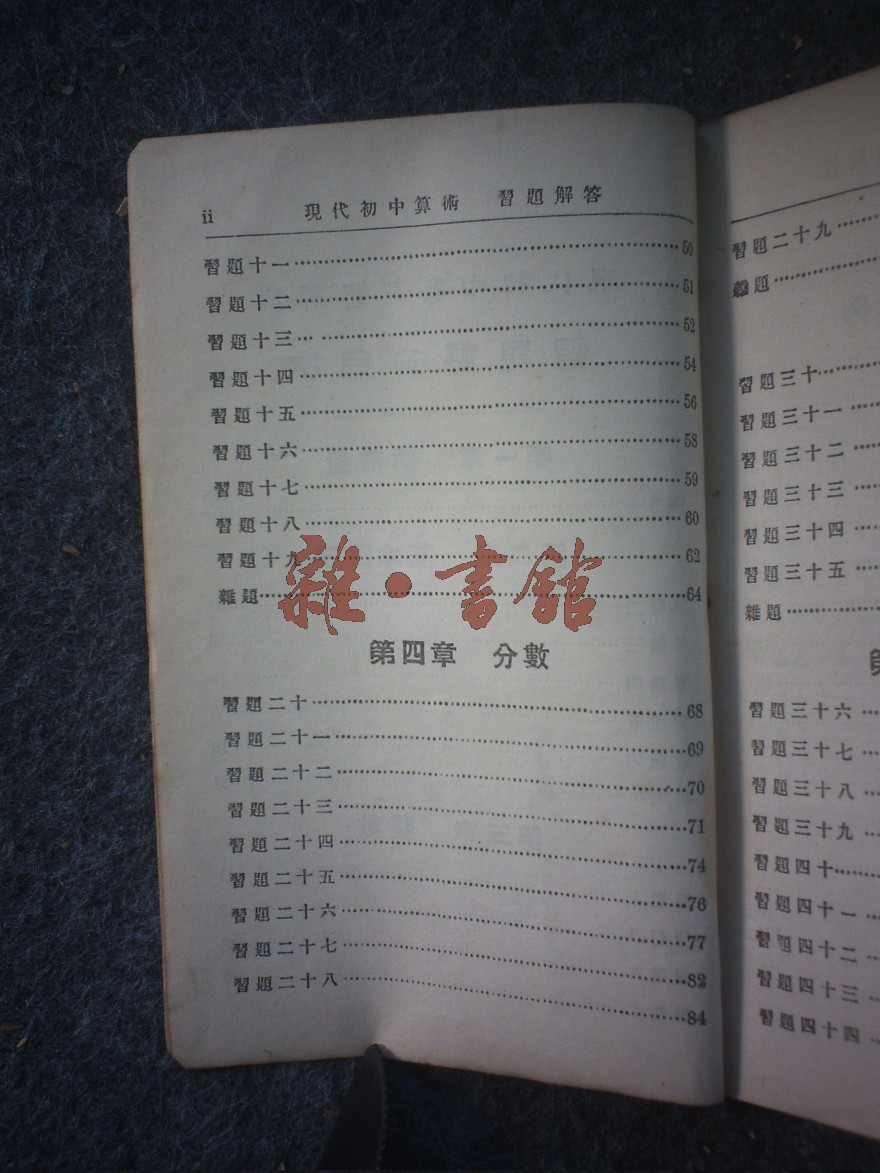 ii 現代初中算術 習題解答
習題十一 50
習題十二 51
習題十三 52
習題十四 54
習題十五 56
習題十六 58
習題十七 59
習題十八 60
習題十九 62
雜題 64
雜·書館
第四章 分數
習題二十 68
習題二十一 69
習題二十二 70
習題二十三 71
習題二十四 74
習題二十五 76
習題二十六 77
習題二十七 82
習題二十八 84
習題二十九
雜題
習題三十
習題三十一
習題三十二
習題三十三
習題三十四
習題三十五
雜題
習題三十六
習題三十七
習題三十八
習題三十九
習題四十
習題四十一
習題四十二
習題四十三
習題四十四